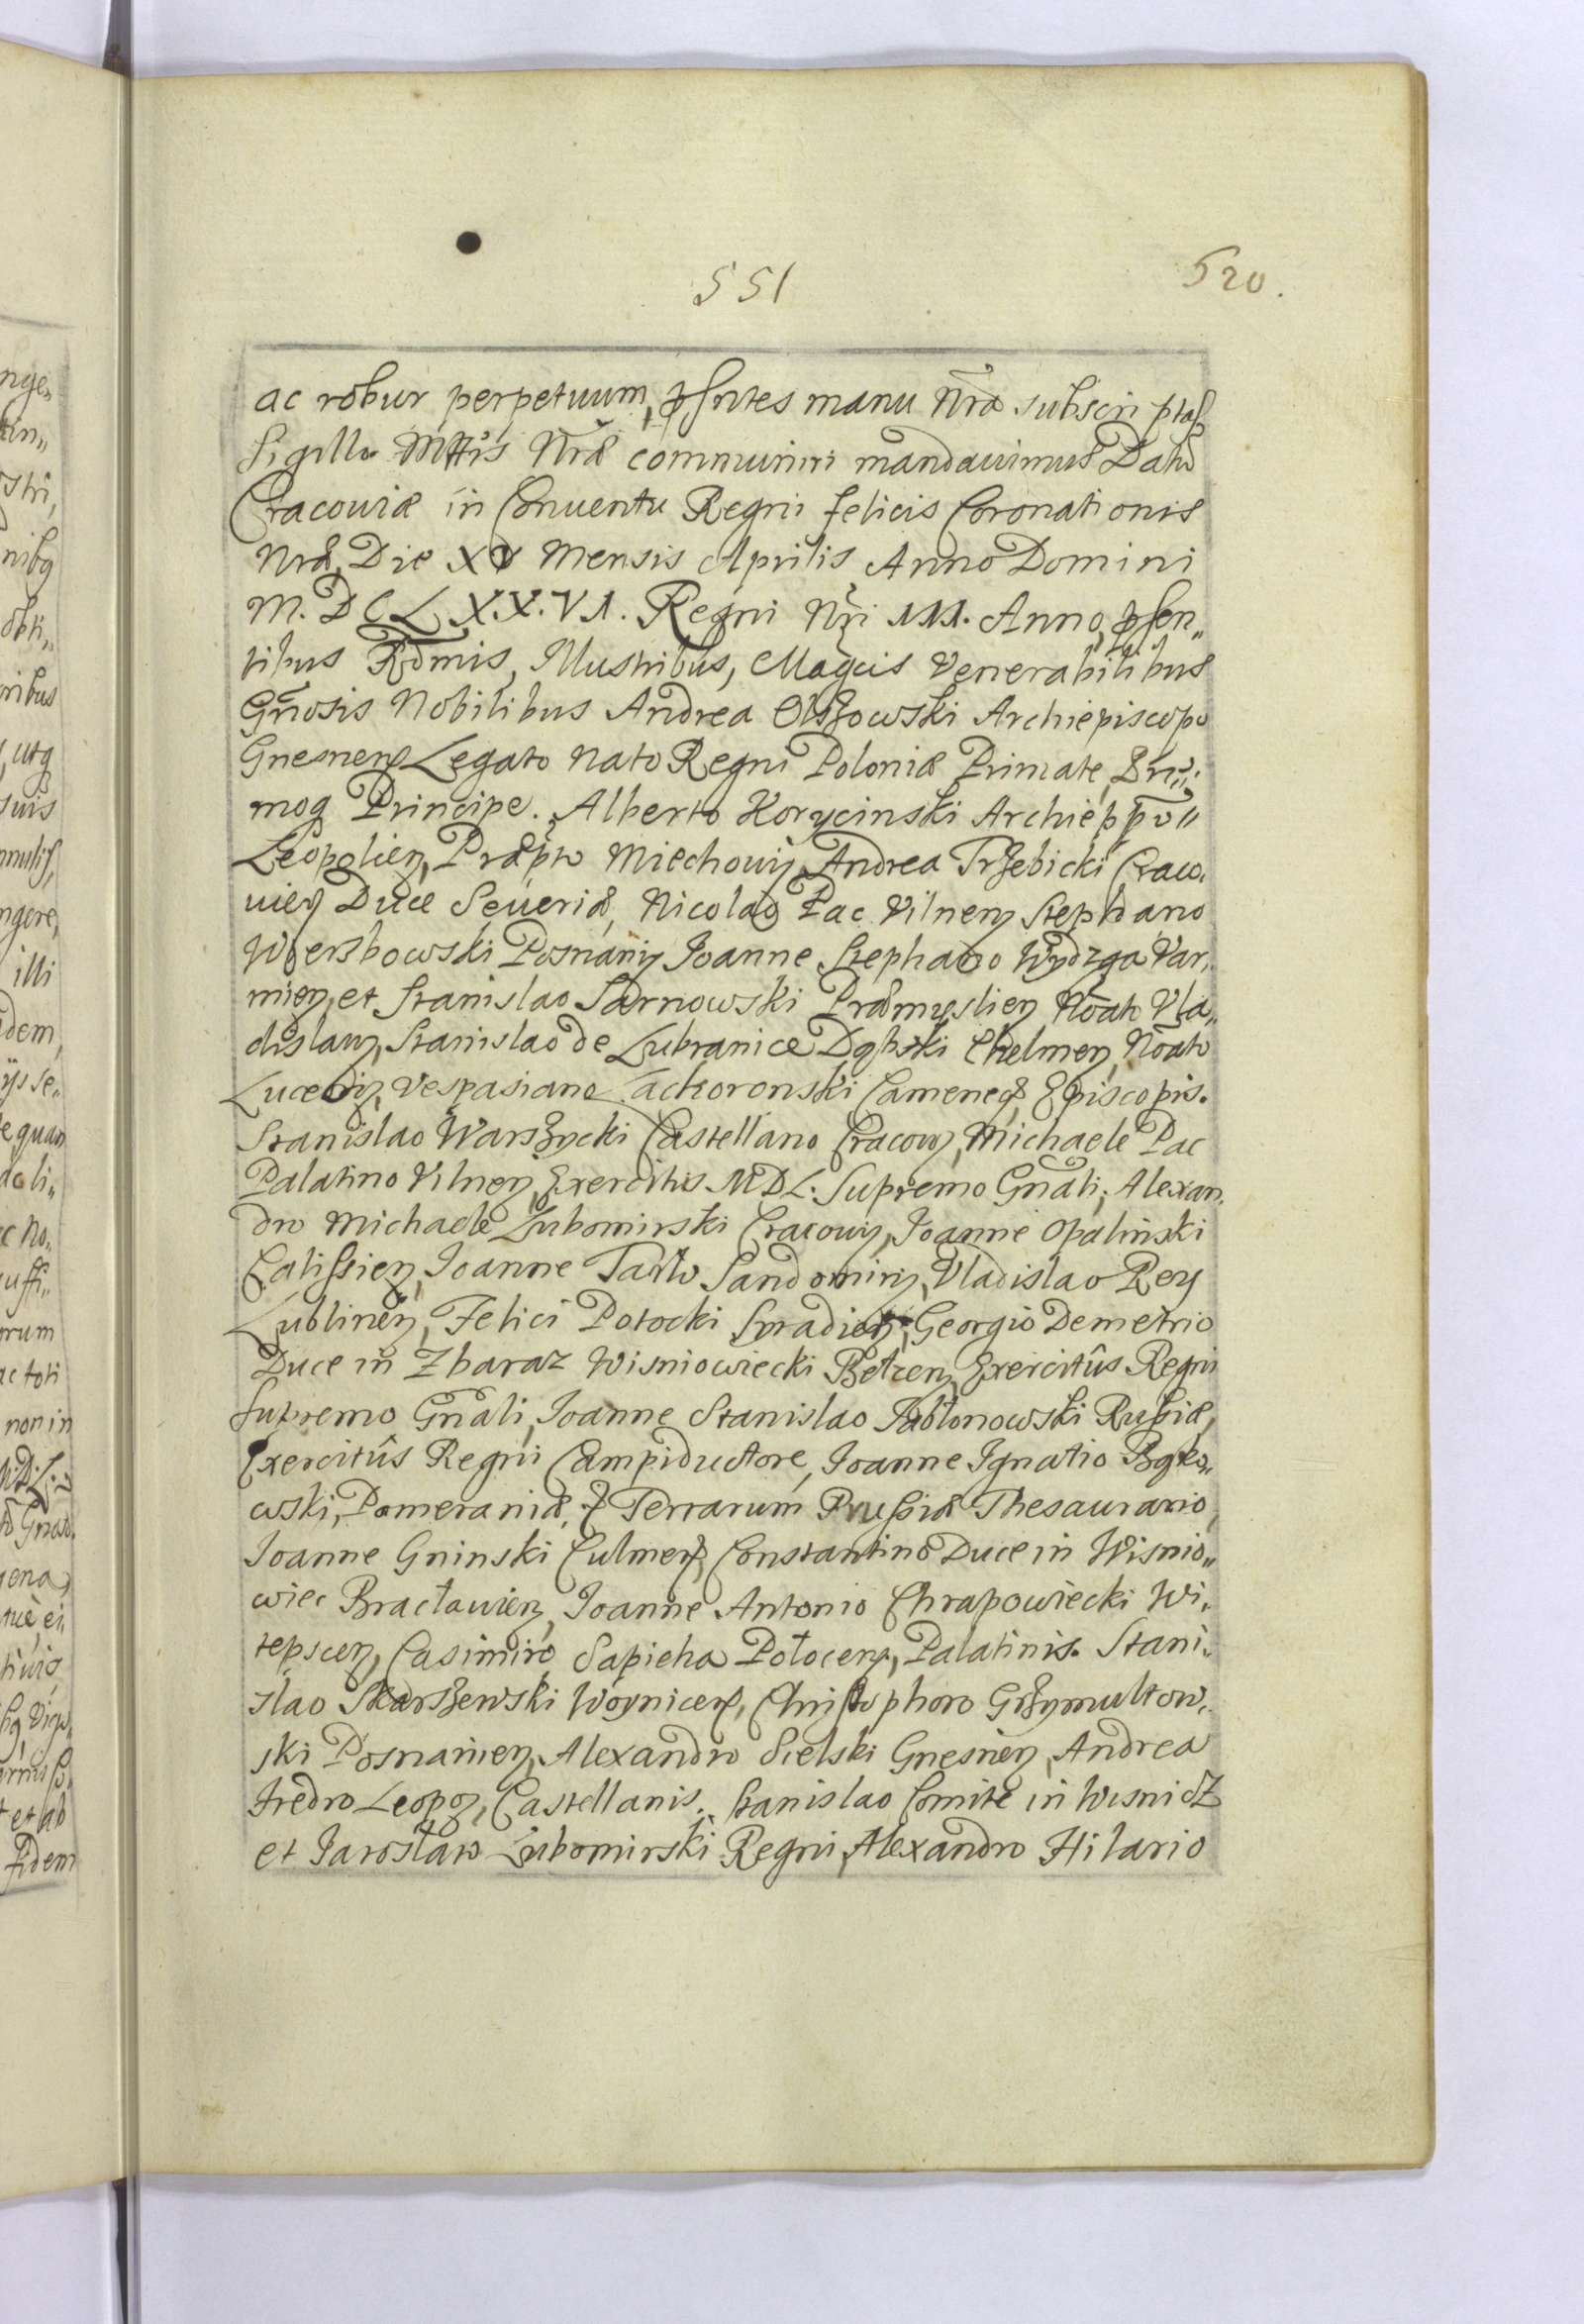 551
520.
ac robur perpetuum, psntes manu Nrã subscriptas
Sigillo Mttis Nræ communiri mandavimus Datũ
Cracoviæ in Conventu Regni felicis Coronationis
Nræ, Die XV Mensis Aprilis Anno Domini
M.DCLXX.VI. Regni Nri III. Anno, psen„
tibus Rdmis, Illustribus, Magcis Venerabilibus
Gnosis Nobilibus Andrea Olszowski Archiepiscopo
Gnesnen Legato Nato Regni Poloniæ Primate,
moq Principe. Alberto Korycinski Archieppo„
Leopolien, Præpto Miechovien, Andrea Trzebicki Craco„
vien Duce Severiæ, Nicolao Pac Vilnen Stephano
Wierzbowski Posnanien Joanne Stephano Wydzga Var„
mien, et Stanislao Sarnowski Præmyslien Noato Vla„
dislaw, Stanislao de Lubranice Dąbski Chelmen, Noato
Luceorien, Vespasiano Lackoronski Camenecen Episcopis.
Stanislao Warszycki Castellano Cracov, Michaele Pac
Palatino Vilnen, Exercitus MDL. Supremo Gnali, Alexan„
dro Michaele Lubomirski Cracovien, Joanne Opalinski
Calissien, Joanne Tarło Sandomirien, Vladislao Rey
Lublinen, Felici Potocki Syradien, Georgio Demetrio
Duce in Zbaraz Wisniowiecki Belzen, Exercitûs Regni
Supremo Gnali, Joanne Stanislao Jabłonowski Russiæ,
Exercitûs Regni Campiductore, Joanne Ignatio Bąko„
wski, Pomeraniæ, & Terrarum Prussiæ Thesaurario,
Joanne Gninski Culmen, Constantino Duce in Wisnio„
wiec Bracłavien, Joanne Antonio Chrapowiecki Wi„
tepscen, Casimiro Sapieha Połocen, Palatinis. Stani„
slao Skarszewski Woynicen, Christophoro Grzymultow„
ski Posnanien, Alexandro Sielski Gnesnen, Andrea
Fredro Leopoln, Castellanis. Stanislao Comite in Wisnicz
et Jarosław Lubomirski Regni, Alexandro Hilario